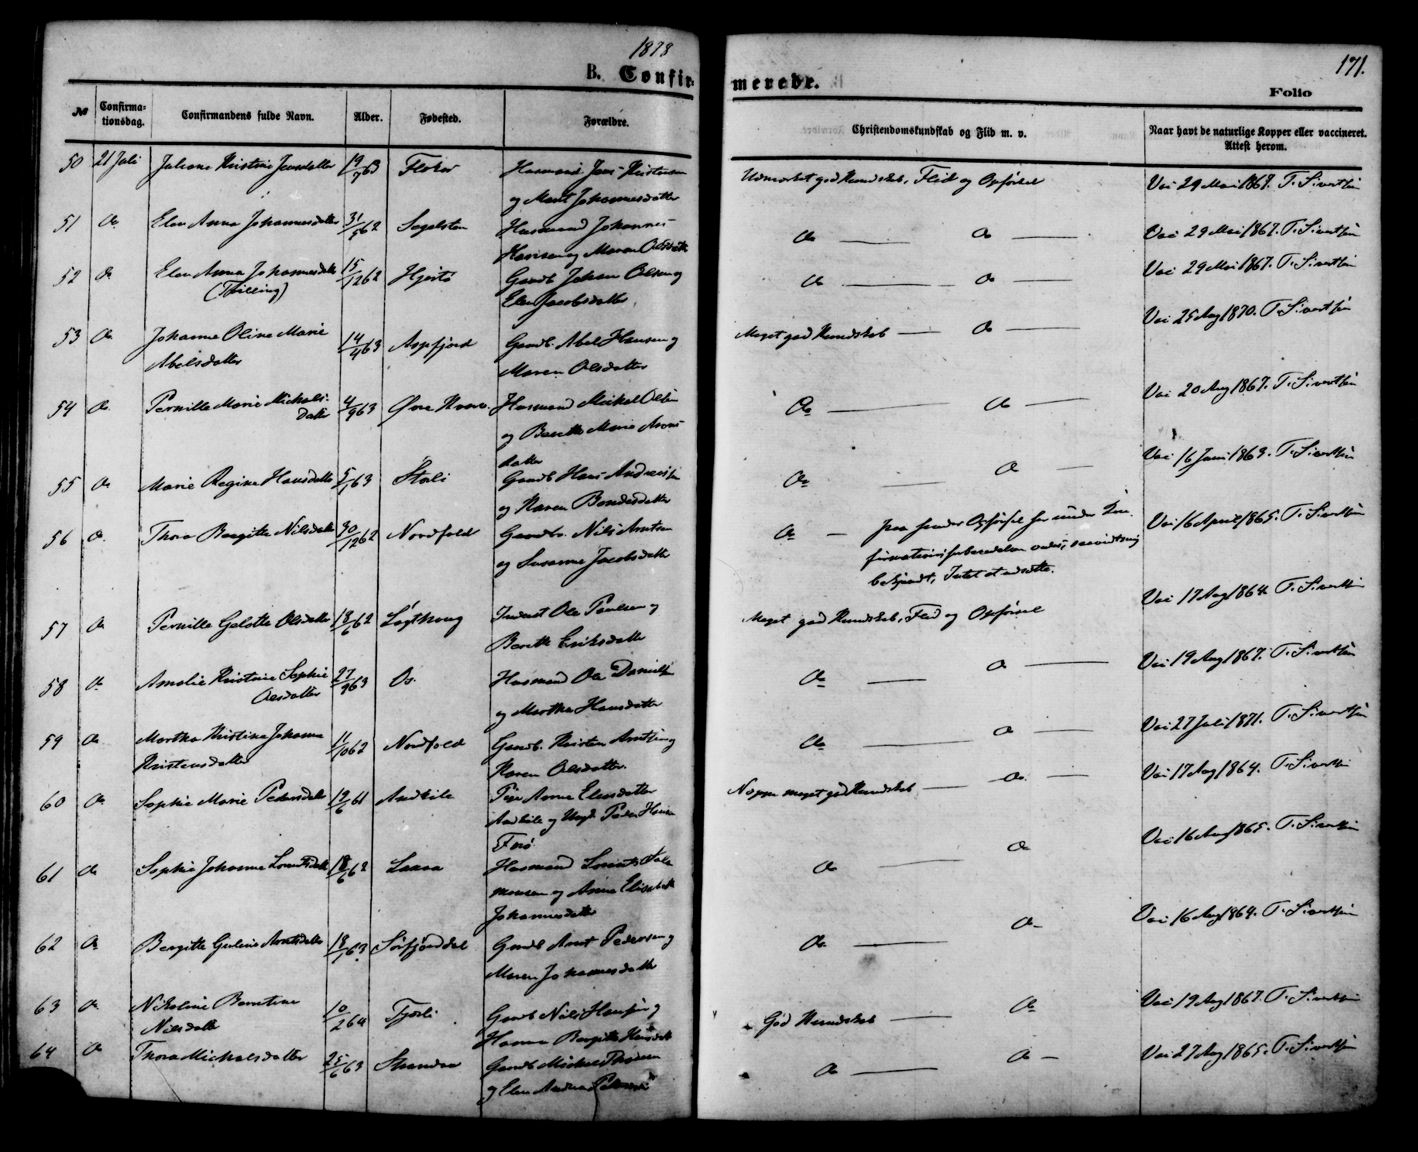 1878
B. Confirmerede.
171.
Folio
№ Confirmationsdag. Confirmandens fulde Navn. Alder. Fødested. Forældre. Christendomskundskab og Flid m. v. Naar havt de naturlige Kopper eller vaccineret. Attest herom.
50 21 Juli Juliane Kristine Jensdatter 19/7 63 Husmand Jens Kristensen Udmærket god Kundskab, Flid og Opførsel Vac 29 Mai 1867. T. Sivertsen
og Marit Johannesdatter
51 Do Elen Anna Johannesdatter 31/5 62 Sagelsten Husmand Johannes Do Do Vac 29 Mai 1867. T. Sivertsen
Hansen og Maren Olsdatter
52 Do Elen Anna Johannesdatter 15/12 62 Hjertø Gaardb. Johan Olsen og Do Do Vac 29 Mai 1867. T. Sivertsen
(Tvilling) Elen Jacobsdatter
53 Do Johanne Oline Marie 14/4 63 Aspfjord Gaardb. Abel Hansen og Meget god Kundskab Do Vac 25 Aug 1870. T. Sivertsen
Abelsdatter Maren Olsdatter
54 Do Pernille Marie Mickels- 4/9 63 Øvre Husmand Mickel Olsen Do Do Vac 20 Aug 1867. T. Sivertsen
datter og Berith Marie Arons-
datter
55 Do Marie Regine Hansdatter 5/1 63 Storli Gaardb Hans Andreassen Do Do Vac 16 Juni 1863. T. Sivertsen
og Karen Bendesdatter
56 Do Thora Bergitte Nilsdatter 30/12 62 Nordfold Gaardbr. Nils Arntsen Do paa hendes Opførsel har under Con- Vac 16 April 1865. T. Sivertsen
og Susanna Jacobsdatter firmationsforberedelsen været, saavidt mig
bekjendt, Intet at udsætte.
57 Do Pernille Olsdatter 18/6 62 Løgthoug Inderst Ole Paulsen og Meget god Kundskab, Flid og Opførsel Vac 17 Aug 1864. T. Sivertsen
Berith Eriksdatter
58 Do Amalie Kristine Sophie 27/9 63 Os Husmand Ole Danielsen Do Do Vac 19 Aug 1867. T. Sivertsen
Olsdatter og Martha Hansdatter
59 Do Martha Kristina Johanna 11/10 62 Nordfold Gaardb. Kristen Arntsen og Do Do Vac 27 Juli 1871. T. Sivertsen
Kristensdatter Karen Olsdatter
60 Do Sophie Marie Pedersdatter 19/6 61 Pige Anne Eliasdatter Noppe meget god Kundskab Do Vac 17 Aug 1864. T. Sivertsen
og Ungk. Peder Hansen
61 Do Sophie Johanna Lorentsdatter 18/6 62 Husmand Lorents Salo- Do Do Vac 16 Aug 1865. T. Sivertsen
monsen og Anne Elisabeth
Johannesdatter
62 Do Bergitte Arntsdatter 18/1 63 Sørfjorddal Gaardb Arnt Pedersen og Do Do Vac 16 Aug 1864. T. Sivertsen
Maren Johannesdatter
63 Do Nikoline Berntine 10/2 64 Gaardb Nils Hansen og God Kundskab Do Vac 19 Aug 1867. T. Sivertsen
Nilsdatter Hanna Bergitte Hansdatter
64 Do Thora Mickalsdatter 25/6 63 Strandaa Gaardb Mickal Do Do Vac 27 Aug 1865. T. Sivertsen
og Elen Andrea